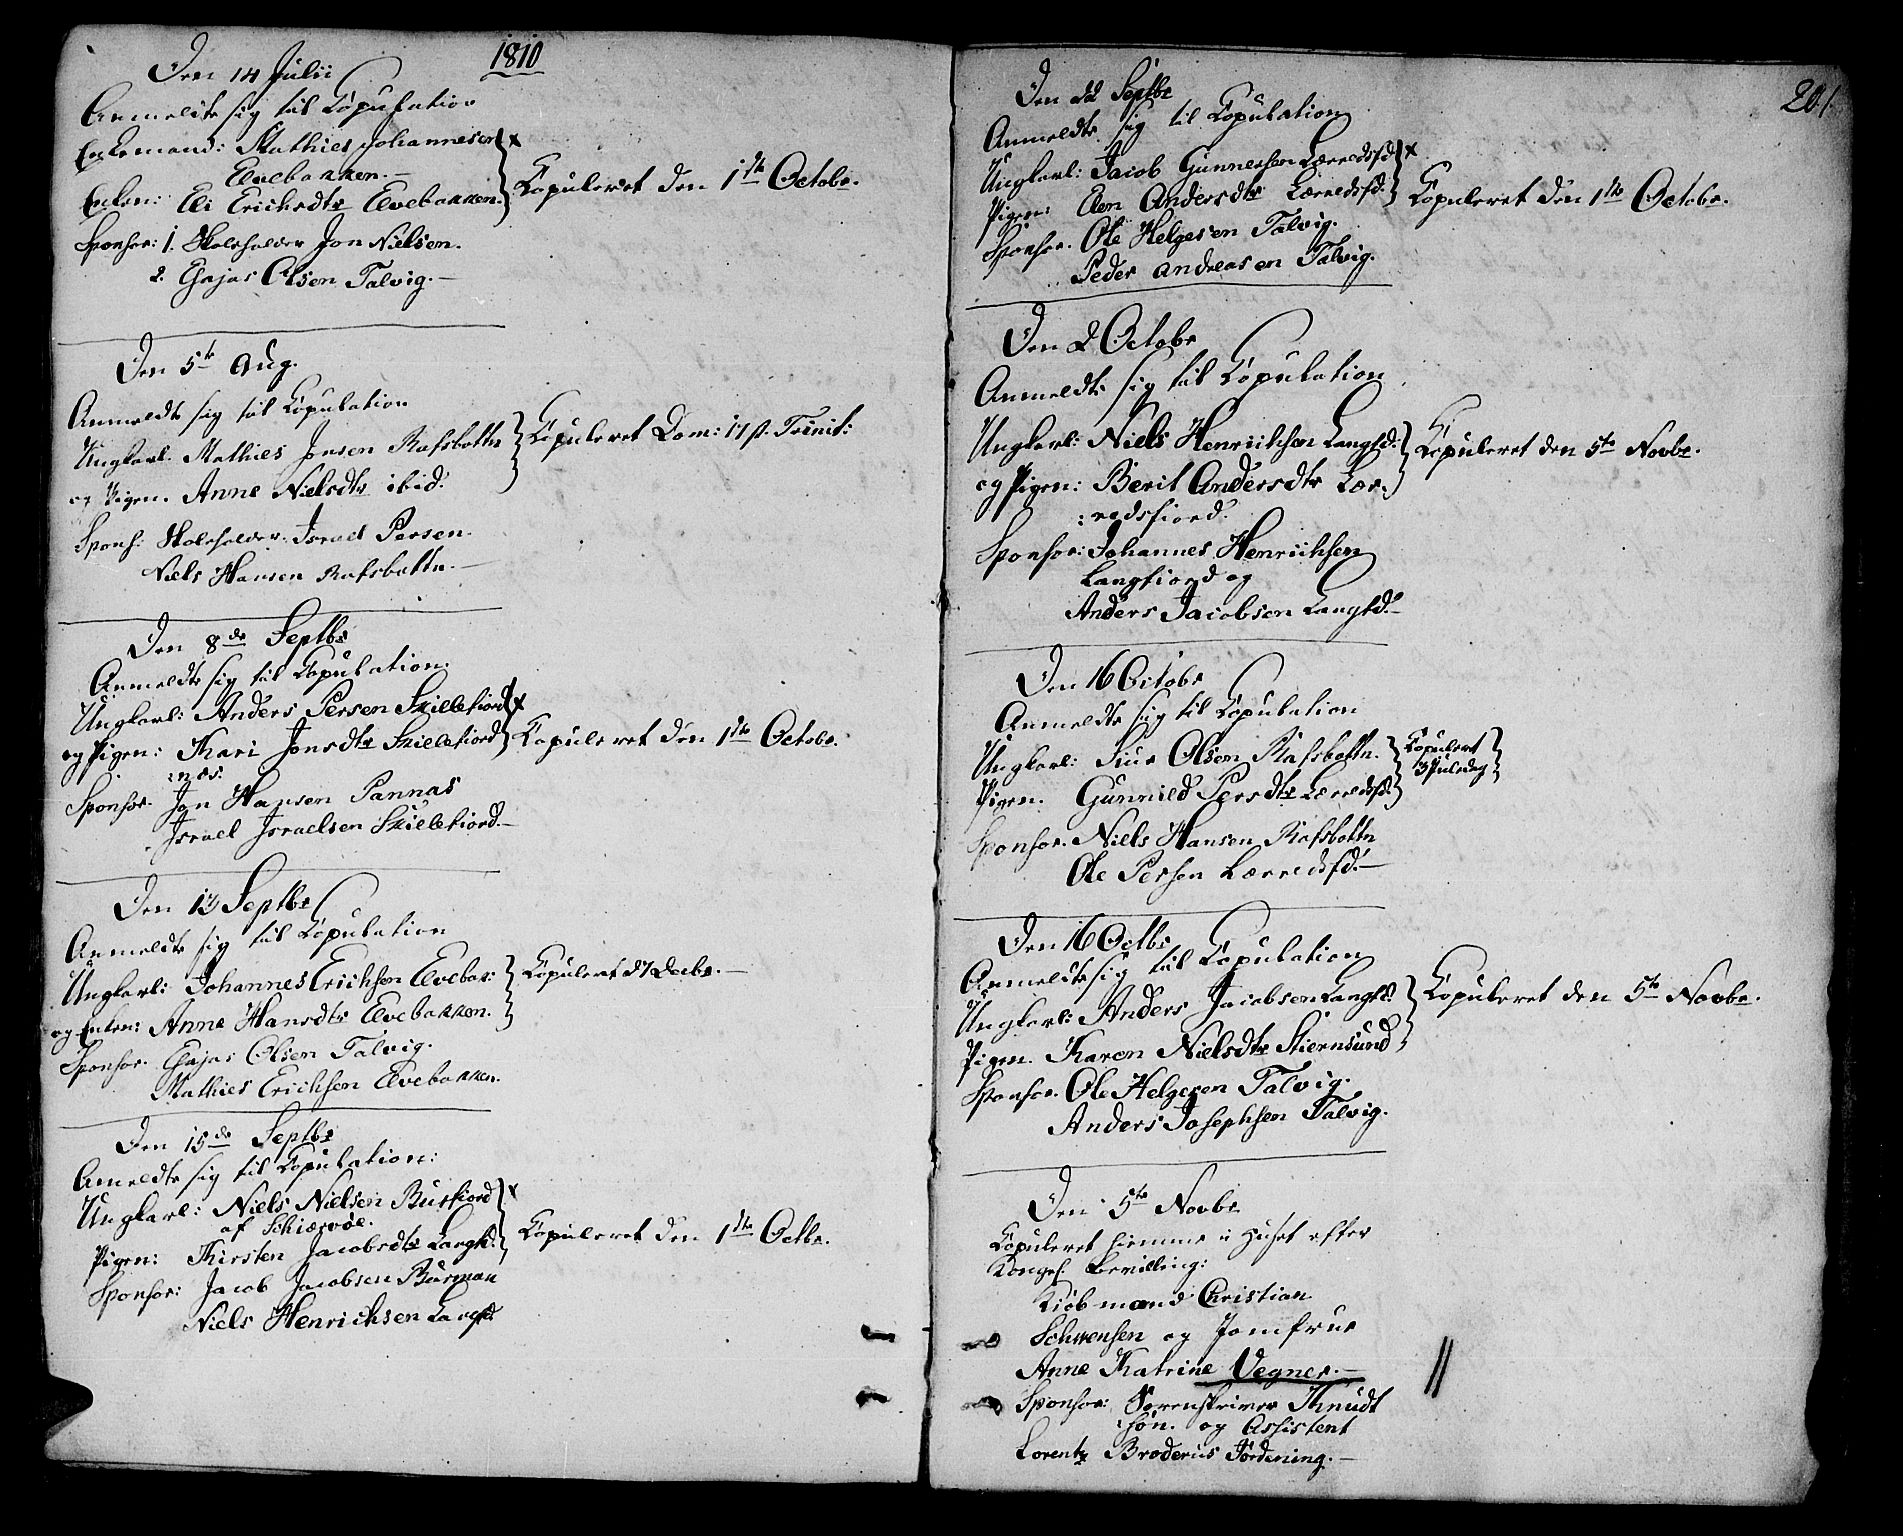 1810
Den 14 Julii
Anmeldte sig til Copulation
Enkemand: Mathies Johannesen
Elvebakken. —
Enken: Eli Erichsdtr Elvebakken.
Copuleret den 1ste Octobr.
Sponsor: 1. Skoleholder Jon Nielsen.
2. Ole Olsen Talvig. —
Den 5te Aug.
Anmeldte sig til Copulation
Ungkarl. Mathies Jonsen Rafsbottn
og Pigen. Anne Nielsdtr ibid.
Copuleret Dom: 17 p. Trinit:
Spons: Skoleholder. Israel Persen.
Niels Hansen Rafsbottn. —
Den 8de Septbr
Anmeldte sig til Copulation.
Ungkarl: Anders Persen Skillefiord
og Pigen: Kari Jonsdtr Skillefiord
:nes:
Copuleret den 1ste Octobr.
Sponsor. Jon Hansen Pannas
Israel Israelsen Skillefiord. —
Den 13 Septbr
Anmeldte sig til Copulation
Ungkarl: Johannes Erichsen Elvebac:
og Enken: Anne Hansdtr Elvebakken.
Copuleret d 7 Decbr. —
Sponsor. Olsen Talvig.
Mathies Erichsen Elvebakken.
Den 15de Septbr
Anmeldte sig til Copulation:
Ungkarl: Niels Nielsen Burfiord
af Schiervöe.
Pigen: Kirsten Jacobsdtr Langfd:
Copuleret den 1ste Octbr.
Sponsor: Jacob Jacobsen Burman
Niels Henrichsen Langfd.
201.
Den 22 Septbr
Anmeldte sig til Copulation
Ungkarl: Jacob Gunnersen Lærredsfd
Pigen: Elen Andersdtr Lærredsfd:
Copuleret den 1ste Octobr.
Sponsor. Ole Helgesen Talvig.
Peder Andreasen Talvig.
Den 2 Octobr
Anmeldte sig til Copulation
Ungkarl: Niels Henrichsen Langfd:
og Pigen: Berit Andersdtr Lær:
:redsfiord.
Copuleret den 5te Novbr.
Sponsor: Johannes Henrichsen
Langfiord og
Anders Jacobsen Langfd. —
Den 16 Octobr
Anmeldte sig til Copulation
Ungkarl: Siur Olsen Rafsbottn.
Pigen. Gunnild Persdtr Lærredsfd.
Copuleret
3 Juledag
Sponsor. Niels Hansen Rafsbottn
Ole Persen Lærredsfd. —
Den 16 Octbr
Anmeldte sig til Copulation
Ungkarl: Anders Jacobsen Langfd.
Pigen. Karen Nielsdtr Stiernsund
Copuleret den 5te Novbr.
Sponsor. Ole Helgesen Talvig.
Anders Josephsen Talvig.
Den 5te Novbr
Copuleret hiemme i Huset efter
Kongel. Bevilling:
Kiöbmand Christian
Schwensen og Jomfrue
Anne Katrine Vegner. —
Sponsor: Sorenskriver Knudt
:son. og Assistent
Lorentz Broderus Jördening. —